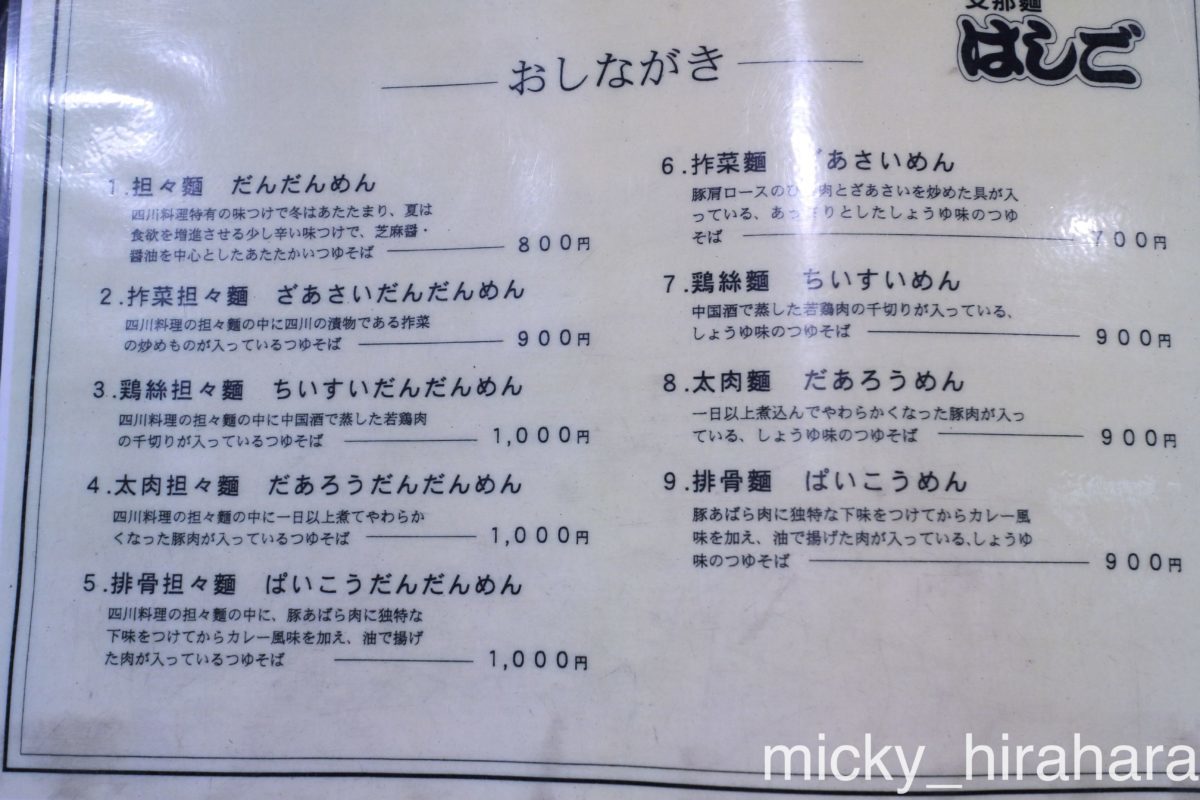 那麺
はしご
おしながき
1.担々麺 だんだんめん
四川料理特有の味つけで冬はあたたまり、夏は
食欲を増進させる少し辛い味つけで、芝麻醤・
醤油を中心としたあたたかいつゆそば 800円
2.搾菜担々麺 ざあさいだんだんめん
四川料理の担々麺の中に四川の漬物である搾菜
の炒めものが入っているつゆそば 900円
3.鶏絲担々麺 ちいすいだんだんめん
四川料理の担々麺の中に中国酒で蒸した若鶏肉
の千切りが入っているつゆそば 1,000円
4.太肉担々麺 だあろうだんだんめん
四川料理の担々麺の中に一日以上煮てやわらか
くなった豚肉が入っているつゆそば 1,000円
5.排骨担々麺 ぱいこうだんだんめん
四川料理の担々麺の中に、豚あばら肉に独特な
下味をつけてからカレー風味を加え、油で揚げ
た肉が入っているつゆそば 1,000円
6.搾菜麺 ざあさいめん
豚肩ロースのひき肉とざあさいを炒めた具が入
っている、あっさりとしたしょうゆ味のつゆ
そば 700円
7.鶏絲麺 ちいすいめん
中国酒で蒸した若鶏肉の千切りが入っている、
しょうゆ味のつゆそば 900円
8.太肉麺 だあろうめん
一日以上煮込んでやわらかくなった豚肉が入っ
ている、しょうゆ味のつゆそば 900円
9.排骨麺 ぱいこうめん
豚あばら肉に独特な下味をつけてからカレー風
味を加え、油で揚げた肉が入っている、しょうゆ
味のつゆそば 900円
micky_hirahara